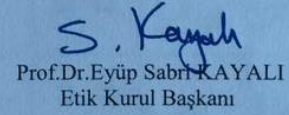 S. Kayalı
Prof.Dr.Eyüp Sabri KAYALI
Etik Kurul Başkanı